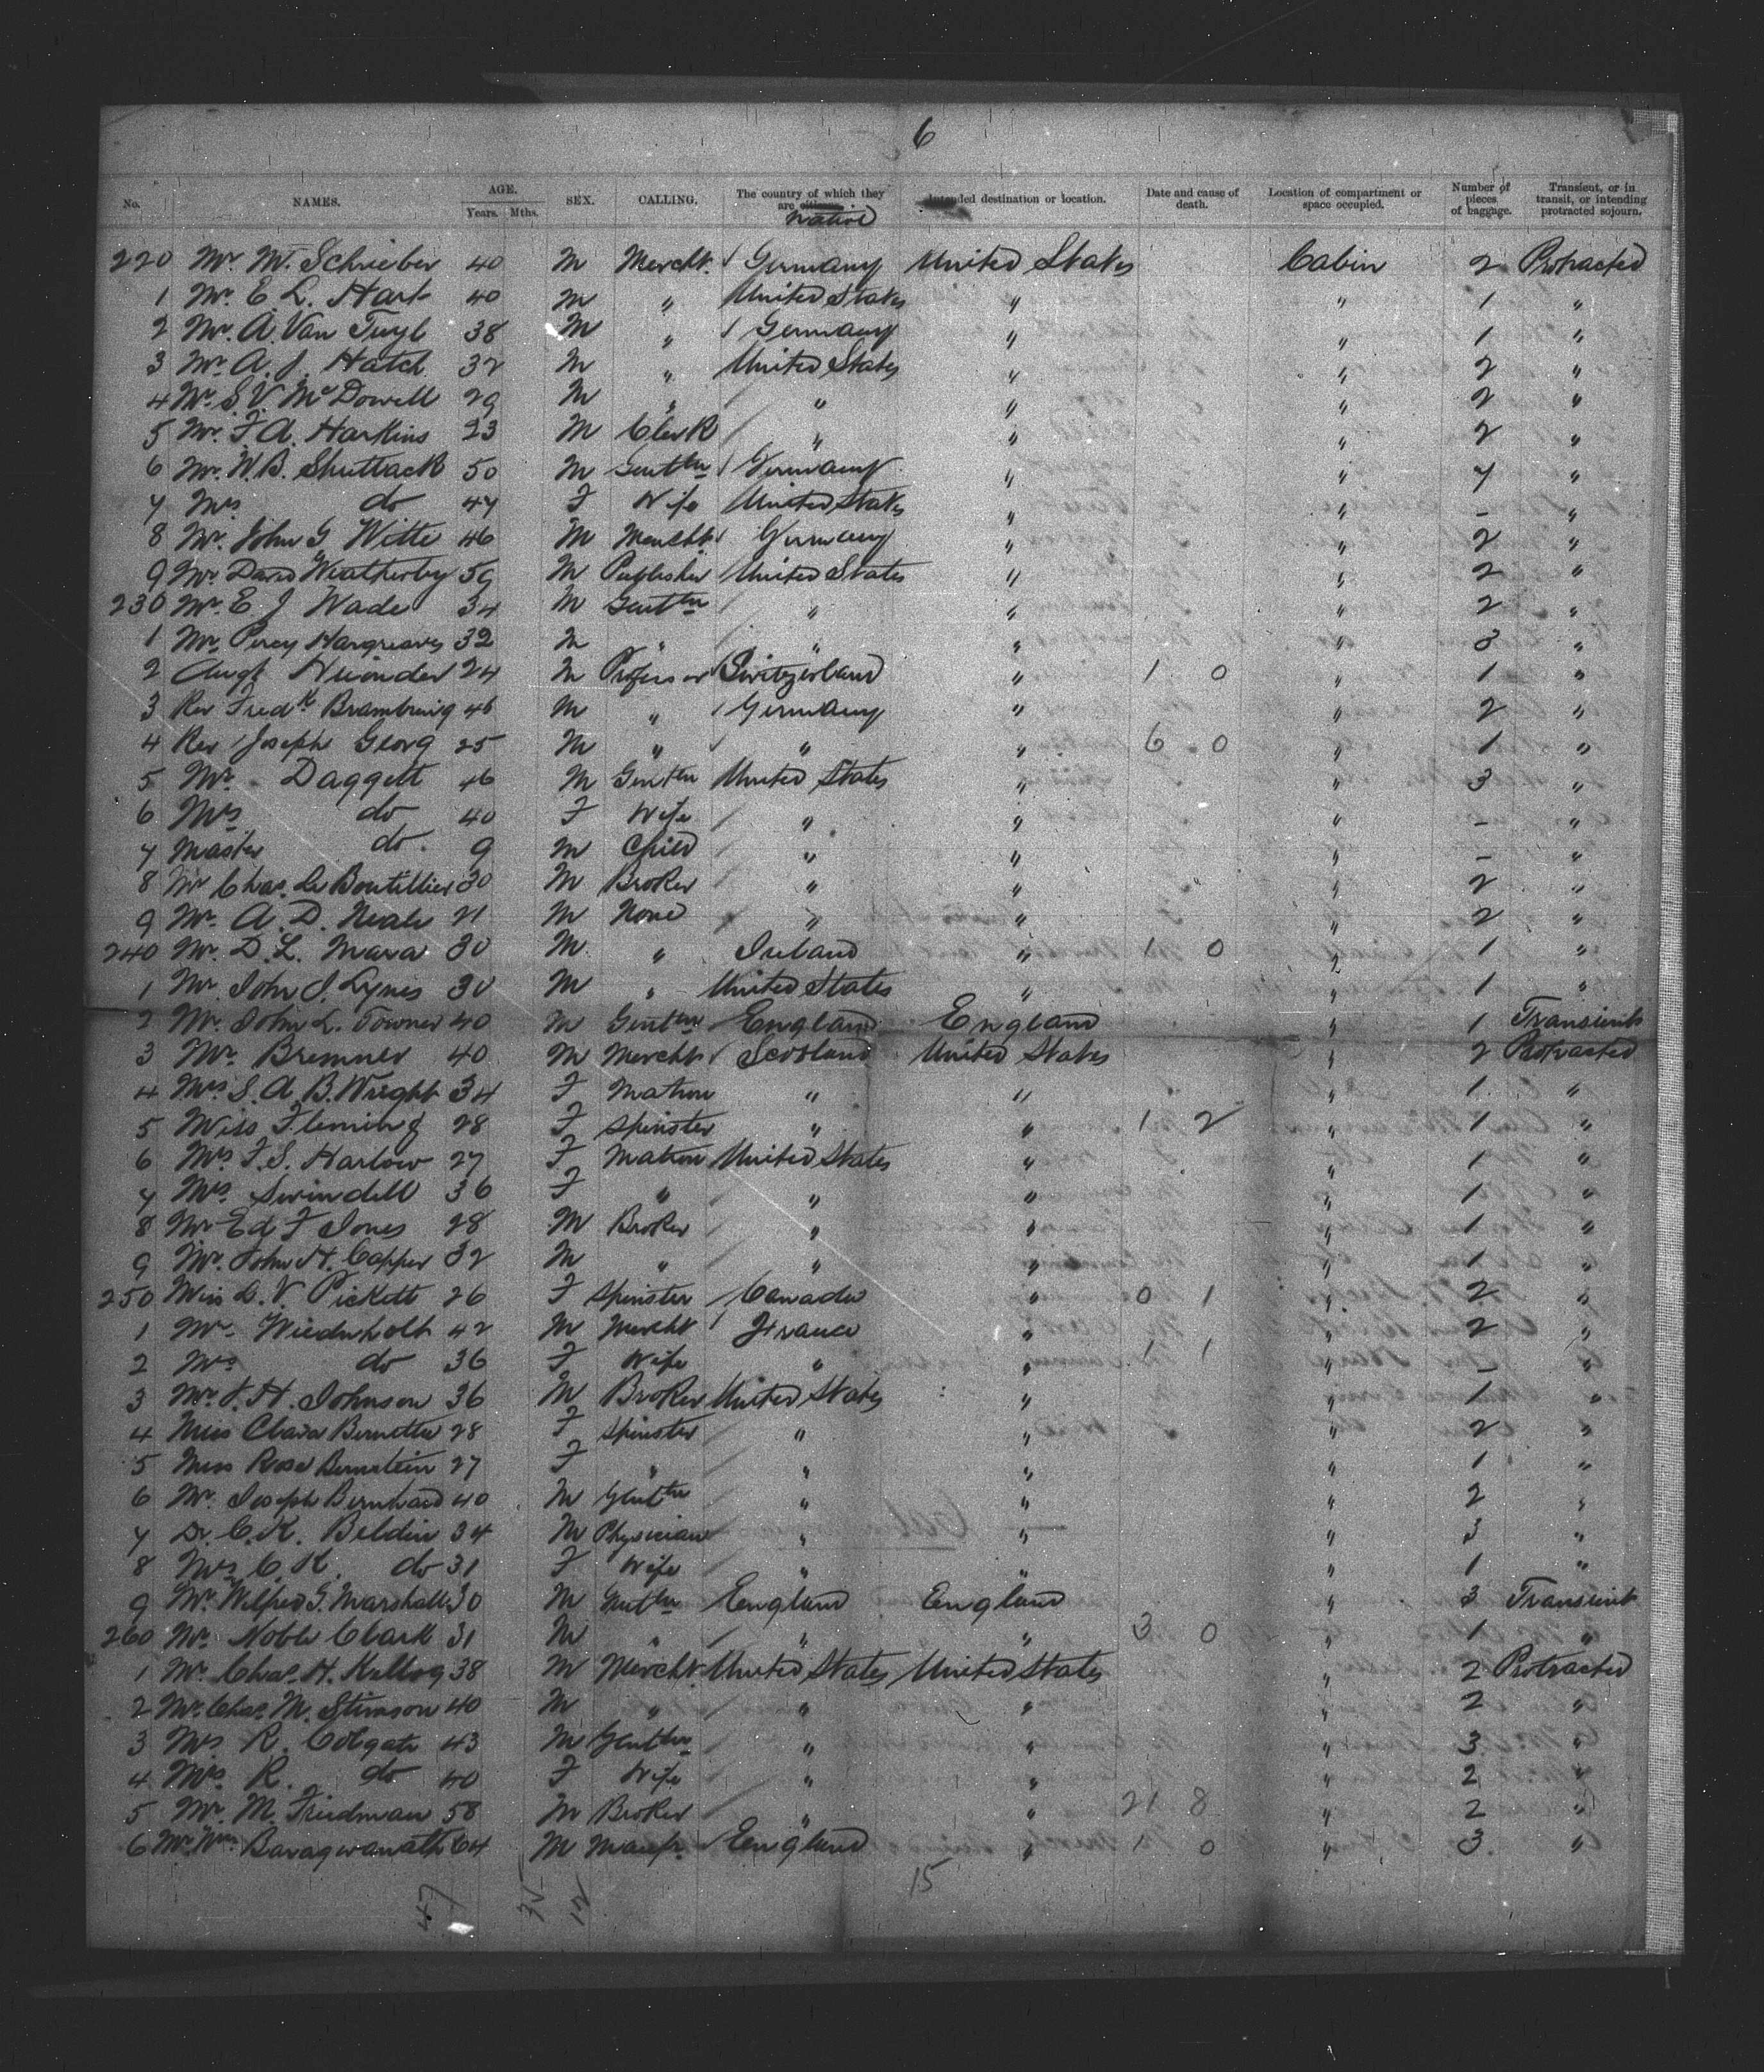 6
No. NAMES. AGE. Years. Mths. SEX. CALLING. The country of which they are citizens. Native Intended destination or location. Date and cause of death. Location of compartment or space occupied. Number of pieces of baggage. Transient, or in transit, or intending protracted sojourn.
220 Mr. M. Schrieber 40 M Mercht. Germany United States Cabin 2 Protracted
1 Mr. E. L. Hart 40 M " United States " " 1 "
2 Mr. A. Van Tuyl 38 M " Germany " " 1 "
3 Mr. A. J. Hatch 32 M " United States " " 2 "
4 Mr. S. V. McDowell 29 M " " " " 2 "
5 Mr. F. A. Harkins 23 M Clerk " " " 2 "
6 Mr. W. B. Shuttack 50 M Gentln Germany " " 7 "
7 Mrs do 47 F Wife United States " " - "
8 Mr. John G Witte 46 M Mercht Germany " " 2 "
9 Mr. David Weatherby 59 M Publisher United States " " 2 "
230 Mr. E J Wade 34 M Gentln " " " 2 "
1 Mr. Percy Hargreaves 32 M " " " " 3 "
2 Augt 24 M Professor Switzerland " 1 0 " 1 "
3 Rev Fredk 46 M " Germany " " 2 "
4 Rev Joseph Georg 25 M " " " 6 0 " 1 "
5 Mr. Daggett 46 M Gentln United States " " 3 "
6 Mrs do 40 F Wife " " " - "
7 Master do. 9 M Child " " " - "
8 Mr Chas. Le Boutillier 30 M Broker " " " 2 "
9 Mr. A. D. Neale 21 M None " " " 2 "
240 Mr. D. L. Mara 30 M " Ireland " 1 0 " 1 "
1 Mr. John J. Lynes 30 M " United States " " 1 "
2 Mr. John L. Towner 40 M Gentln England England " 1 Transient
3 Mr. Bremner 40 M Mercht Scotland United States " 2 Protracted
4 Mrs. S. A. B. Wright 34 F Matron " " " 1 "
5 Miss Fleming 28 F Spinster " " 1 2 " 1 "
6 Mrs F. S. Harlow 27 F Matron United States " " 1 "
7 Mrs. Swindell 36 F " " " " 1 "
8 Mr Ed F Jones 28 M Broker " " " 1 "
9 Mr. John H. Capper 32 M " " " " 1 "
250 Miss L. V. Pickett 26 F Spinster Canada " 0 1 " 2 "
1 Mr. Wiedenholt 42 M Mercht France " " 2 "
2 Mrs do 36 F Wife " " 1 1 " - "
3 Mr. F. H. Johnson 36 M Broker United States " " 1 "
4 Miss Clara 28 F Spinster " " " 2 "
5 Miss Rosa Bernstein 27 F " " " " 1 "
6 Mr. Joseph Bernhard 40 M Gentln " " " 2 "
7 Dr. C. K. Beldin 34 M Physician " " " 3 "
8 Mrs. C. K. do 31 F Wife " " " 1 "
9 Mr. Wilfred G. Marshall 30 M Gentln England England " 3 Transient
260 Mr. Noble Clark 31 M " " " 3 0 " 1 "
1 Mr. Chas. H. Kellog 38 M Mercht United States United States " 2 Protracted
2 Mr. Chas. M. Stimson 40 M " " " " 2 "
3 Mr. R. Colgate 43 M Gentln " " " 3 "
4 Mrs R. do 40 F Wife " " " 2 "
5 Mr. M. Friedman 58 M Broker " " 21 8 " 2 "
6 Mr. Wm. Baragwanath 64 M England " 1 0 " 3 "
47 35 12 15